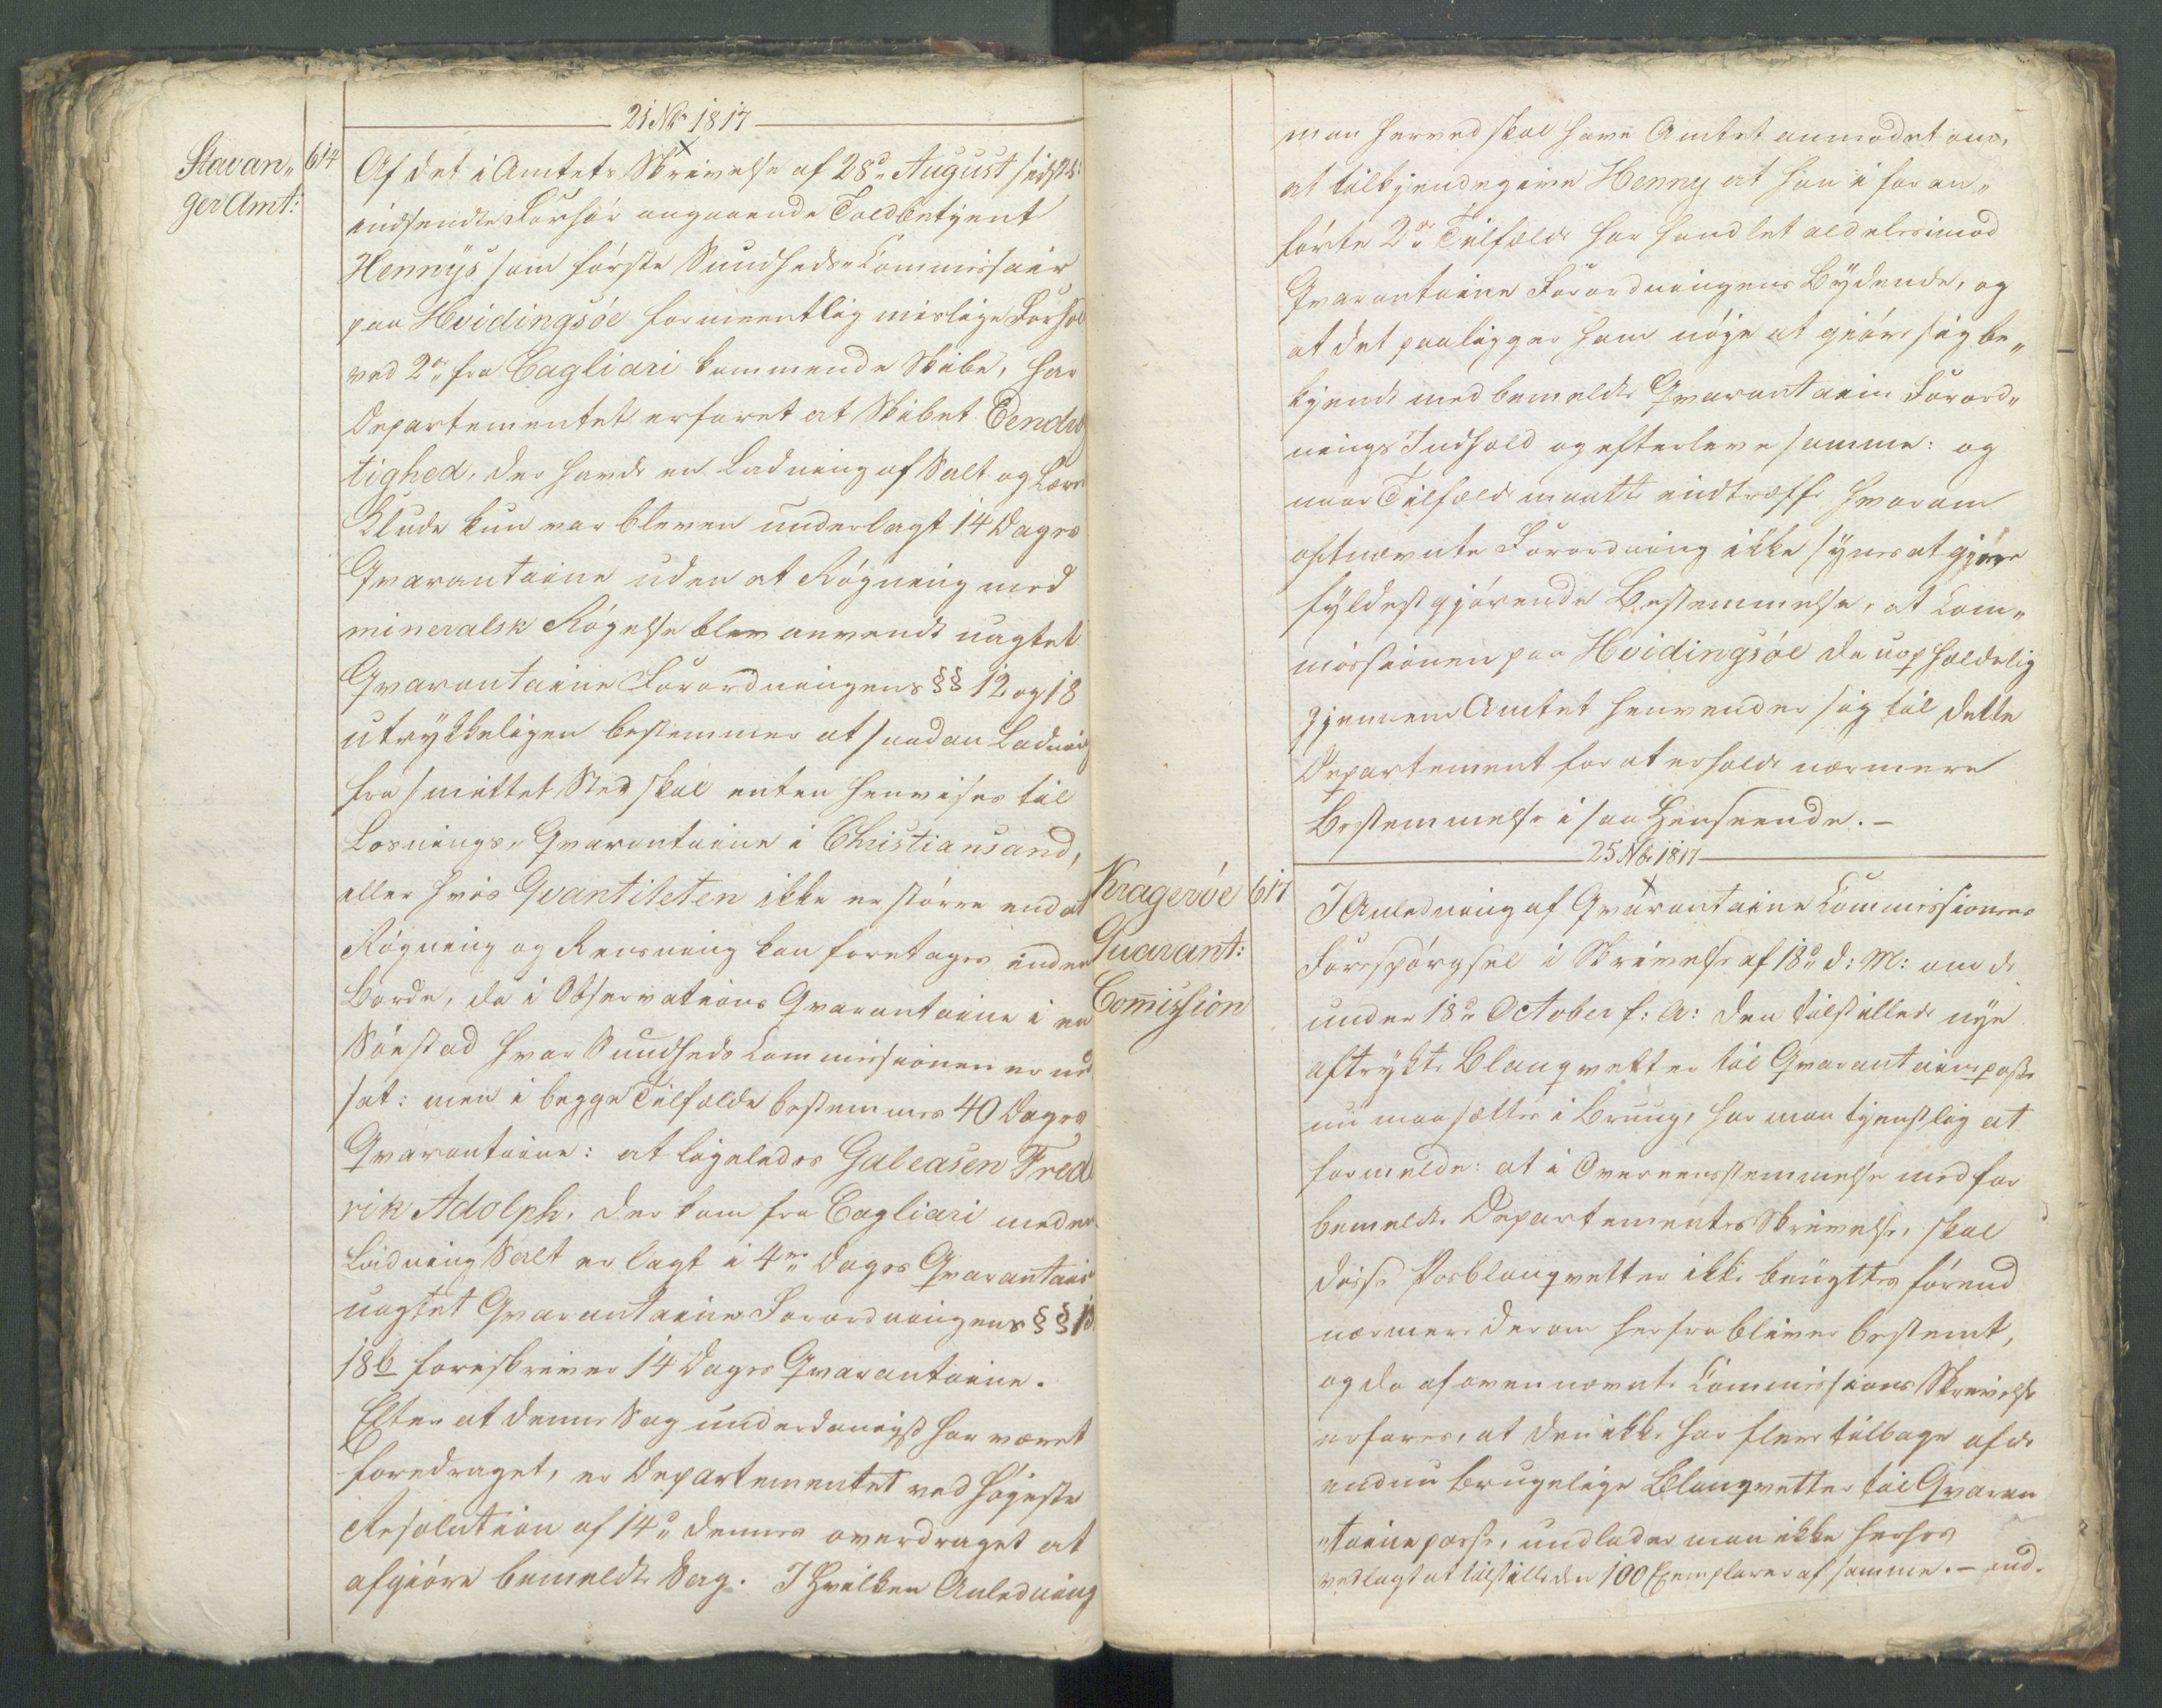 21 Nbr 1817
Stavan„
ger Amt:
614
Af det i Amtets Skrivelse af 28de August sidstl:
indsendte Forhør angaaende Toldbetjent
Hennÿs som første Sundheds Commissair
paa Hvidingsöe formeentlig mislige Forhold
ved 2de fra Cagliari kommende Skibe, har
Departementet erfaret at Skibet Eendræg
tighed, der havde en Ladning af Salt og
Klude kun var bleven underlagt 14 Dages
Qvarantaine uden at Røgning med
mineralsk Røgelse blev anvendt uagtet
Qvarantaine Forordningens §§ 12 og 18
utrykkeligen bestemmer at saadan Ladning
fra smittet Sted skal enten henvises til
Losnings„ Qvarantaine i Christiansand,
eller hvis Qvantiteten ikke er større end at
Røgning og Rensning kan foretages inden
Borde, da i Observations Qvarantaine i en
Søestad hvor Sundheds Commissionen er ned
sat: men i begge Tilfælde bestemmes 40 Dages
Qvarantaine: at ligeledes Galeasen Fred
rik Adolph, der kom fra Cagliari med en
Ladning Salt er lagt i 4re Dages Qvarantaine
uagtet Qvarantaine Forordningens §§
18 b foreskriver 14 Dages Qvarantaine.
Efter at denne Sag underdanigst har været
foredraget, er Departementet ved høieste
Resolution af 14de dennes overdraget at
afgiöre bemeldte Sag. I Hvilken Anledning
man herved skal have Amtet anmodet om,
at tilkjendegive Henny at han i for an„
förte 2de Tilfælde har handlet aldeles imod
Qvarantaine Forordningens Bÿdende, og
at det paaligger ham nöje at giöre sig be„
kjendt med bemeldte Qvarantaine Forord„
nings Indhold og efterleve samme: og
naar Tilfælde maatte indtræffe hvorom
oftnævnte Forordning ikke sÿnes at gjøre
fÿldestgjörende Bestemmelse, at Com„
missionen paa Hvidingsöe da uopholdelig
gjennem Amtet henvender sig til dette
Departement for at erholde nærmere
Bestemmelse i saa Henseende. –
25 Nbr 1817
Kragerøe
Quarant:
Comission
617
I Anledning af Qvarantaine Commissionens
Forespørgsel i Skrivelse af 18de d: M: om de
under 18de October f: A: den tilstillede nÿe
aftrÿkte Blanqvetter til Qvarantainepasse
nu maa sættes i Bruug, har man tjenstlig at
formelde: at i Overeensstemmelse med for
bemeldte Departementets Skrivelse, skal
disse Pasblanqvetter ikke benÿttes förend
nærmere derom herfra bliver bestemt,
og da af ovennævnte Commissions Skrivelse
erfares, at den ikke har flere tilbage af de
endnu brugelige Blanqvetter til Qvaran
„tainepasse, undlader man ikke herhos
vedlagt at tilstille den 100 Exemplarer af samme. –